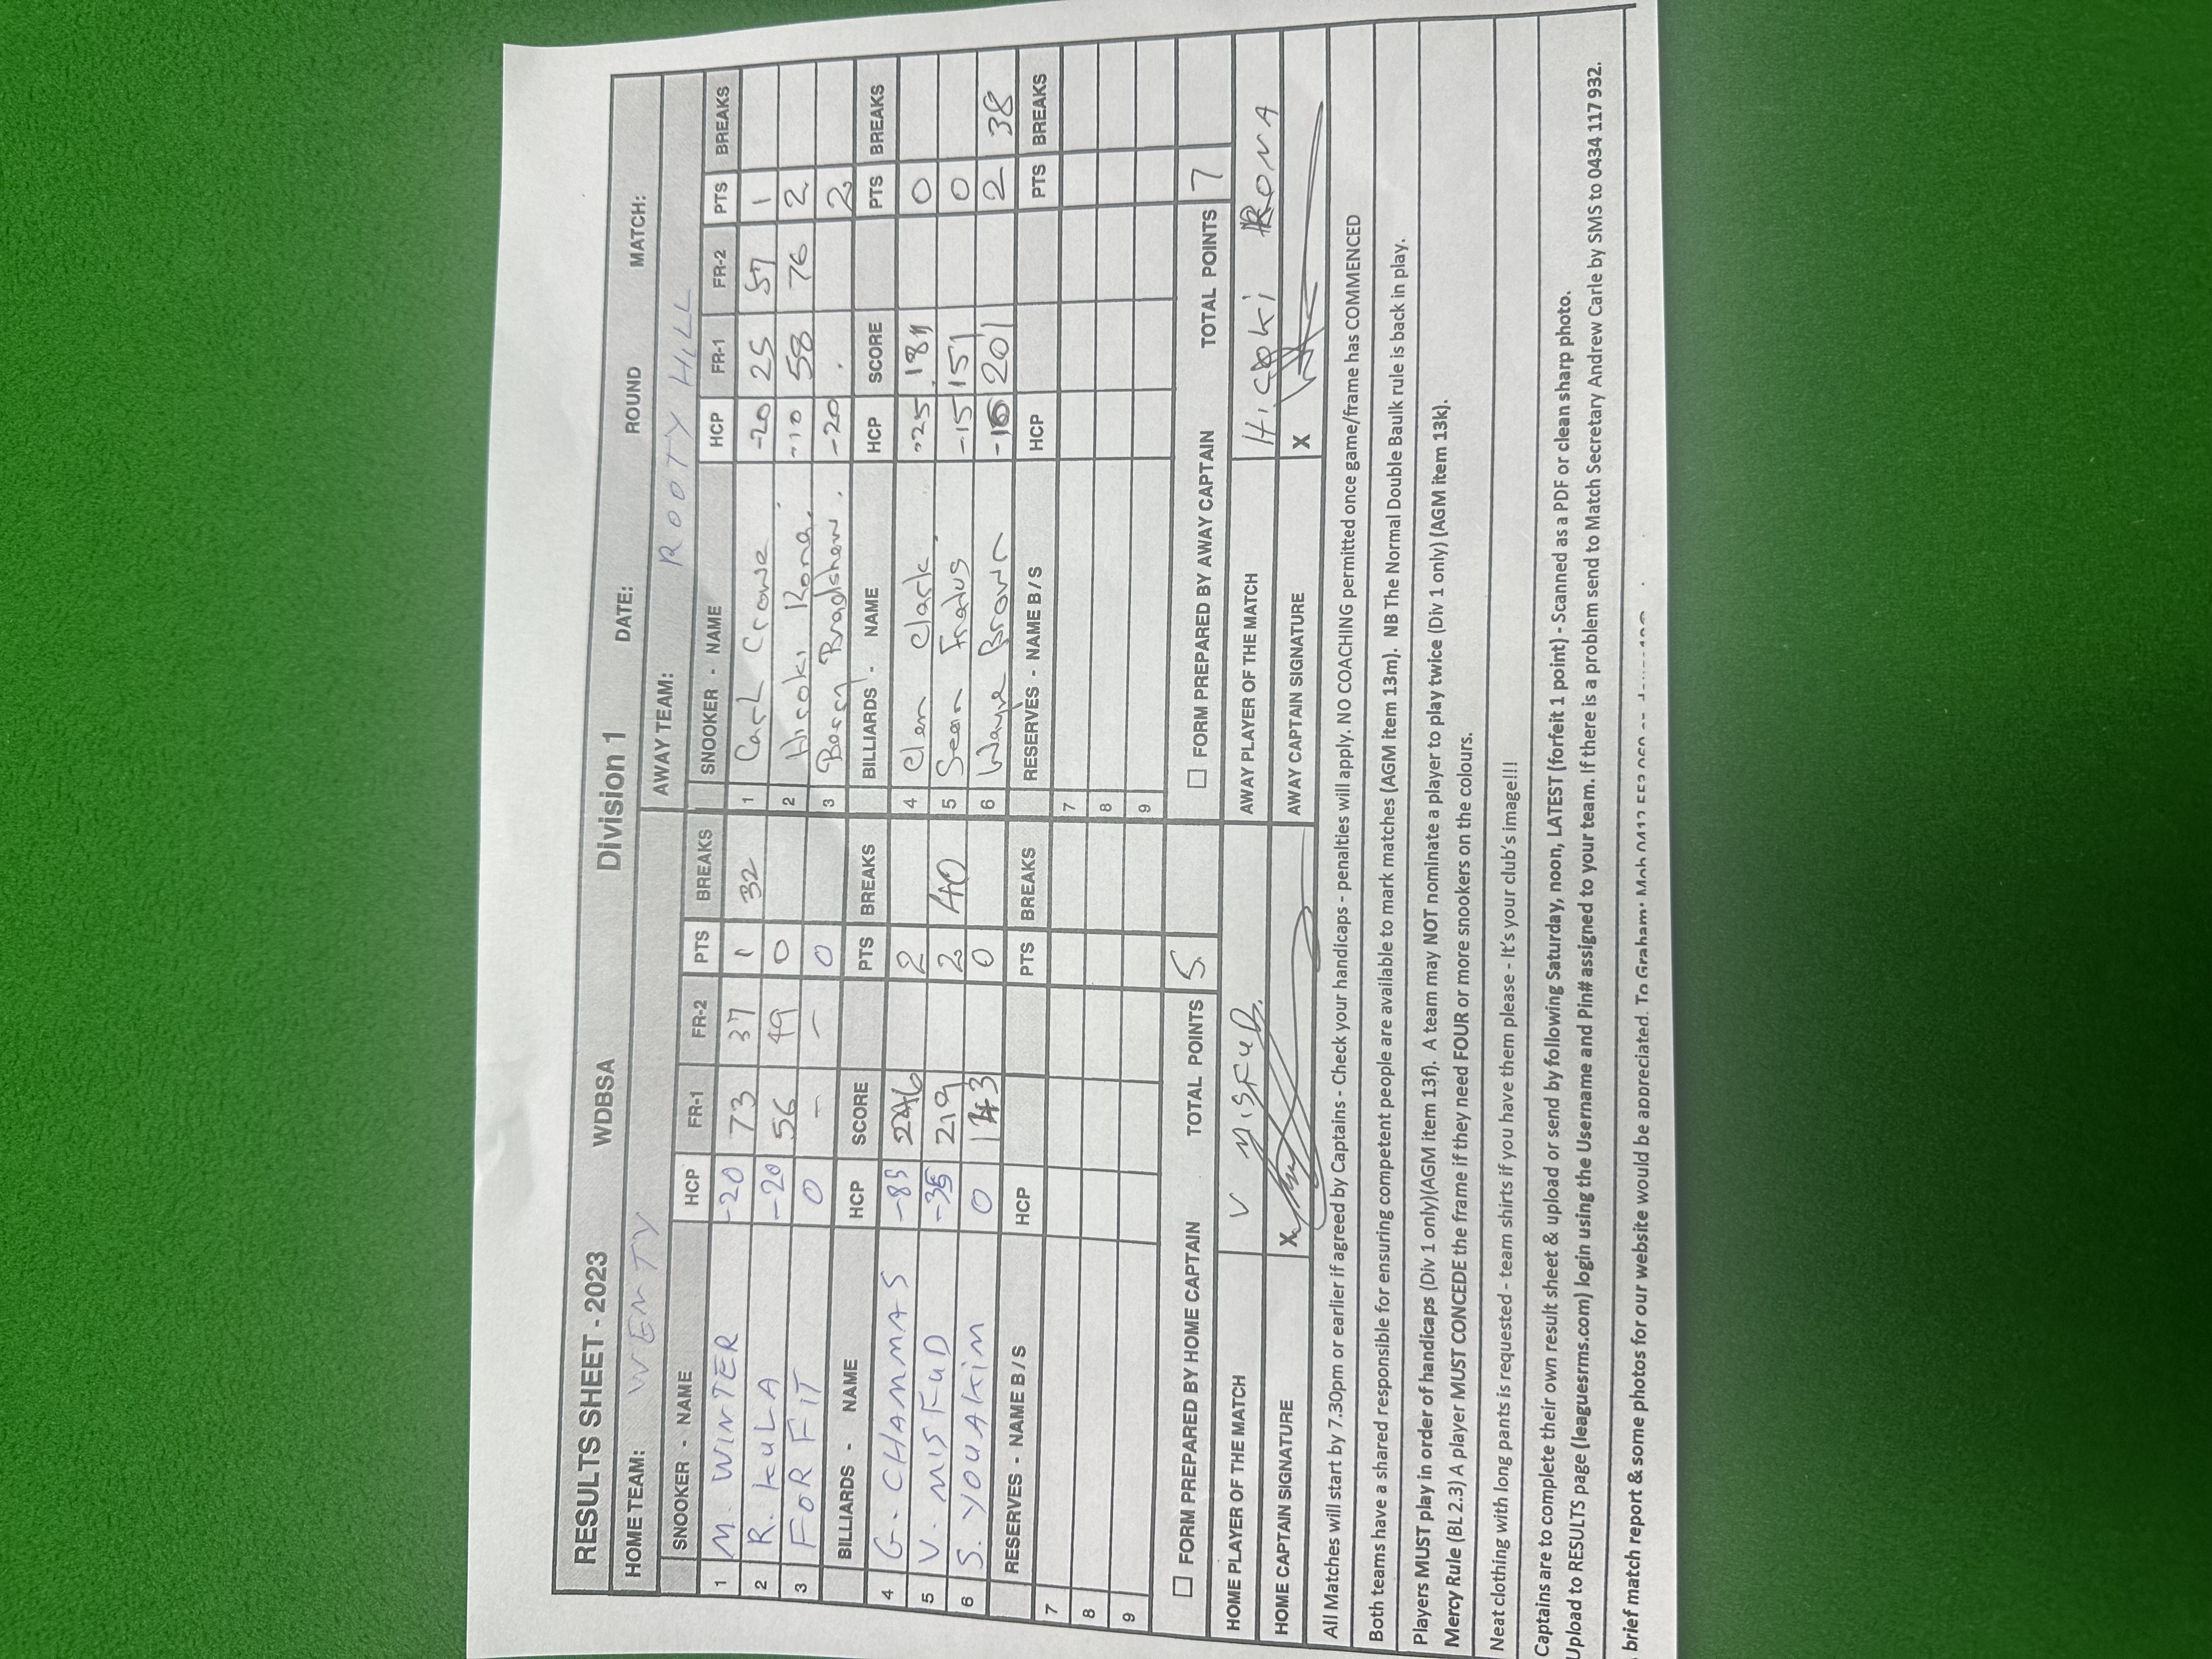 RESULTS SHEET - 2023 WDBSA Division 1 DATE: ROUND MATCH:
HOME TEAM: WENTY AWAY TEAM: ROOTY HILL
SNOOKER - NAME HCP FR-1 FR-2 PTS BREAKS SNOOKER - NAME HCP FR-1 FR-2 PTS BREAKS
1 M. WINTER -20 73 37 1 32 1 Carl Crowe -20 25 57 1
2 R. KULA -20 56 49 0 2 Hiroki Kona -10 58 76 2
3 FOR FIT 0 - - 0 3 Barry Bradshaw. -20 . 2
BILLIARDS - NAME HCP SCORE PTS BREAKS BILLIARDS - NAME HCP SCORE PTS BREAKS
4 G. CHAMMAS -85 246 2 4 Clem Clark -25 181 0
5 V. MISFUD -35 219 2 40 5 Sean -15 151 0
6 S. YOUAKIM 0 143 0 6 Wayne Brown 201 2 38
RESERVES - NAME B / S HCP PTS BREAKS RESERVES - NAME B / S HCP PTS BREAKS
7 7
8 8
9 9
☐ FORM PREPARED BY HOME CAPTAIN TOTAL POINTS 5 ☐ FORM PREPARED BY AWAY CAPTAIN TOTAL POINTS 7
HOME PLAYER OF THE MATCH V MISFUD. AWAY PLAYER OF THE MATCH Hiroki RONA
HOME CAPTAIN SIGNATURE X AWAY CAPTAIN SIGNATURE X
All Matches will start by 7.30pm or earlier if agreed by Captains - Check your handicaps - penalties will apply. NO COACHING permitted once game/frame has COMMENCED
Both teams have a shared responsible for ensuring competent people are available to mark matches (AGM item 13m). NB The Normal Double Baulk rule is back in play.
Players MUST play in order of handicaps (Div 1 only)(AGM item 13f). A team may NOT nominate a player to play twice (Div 1 only) (AGM item 13k).
Mercy Rule (BL 2.3) A player MUST CONCEDE the frame if they need FOUR or more snookers on the colours.
Neat clothing with long pants is requested - team shirts if you have them please - It's your club's image!!!
Captains are to complete their own result sheet & upload or send by following Saturday, noon, LATEST (forfeit 1 point) - Scanned as a PDF or clean sharp photo.
Upload to RESULTS page (leaguesrms.com) login using the Username and Pin# assigned to your team. If there is a problem send to Match Secretary Andrew Carle by SMS to 0434 117 932.
brief match report & some photos for our website would be appreciated. To Graham: